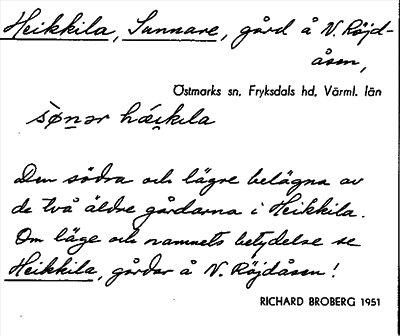 Heikkila, Sunnare, gård å N. Röjd-
åsen,
Östmarks sn, Fryksdals hd, Värml. län
sø̀nər hǽi̯kıla
Den södra och lägre belägna av
de två äldre gårdarna i Heikkila.
Om läge och namnets betydelse se
Heikkila, gårdar å N. Röjdåsen!
RICHARD BROBERG 1951